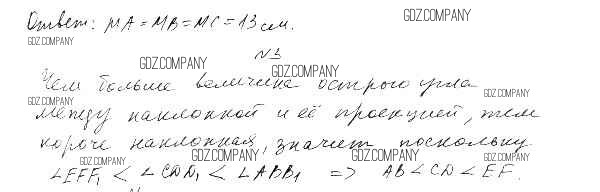 Ответ: MA = MB = MC = 13 см.
GDZ.COMPANY
GDZ.COMPANY
N3
GDZ.COMPANY
GDZ.COMPANY
Чем больше величина острого угла
GDZ.COMPANY
GDZ.COMPANY
между наклонной и её проекцией, тем
короче наклонная, значит поскольку
GDZ.COMPANY
GDZ.COMPANY
GDZ.COMPANY
GDZ.COMPANY
∠EFF₁ < ∠CDD₁ < ∠ABB₁ => AB < CD < EF.